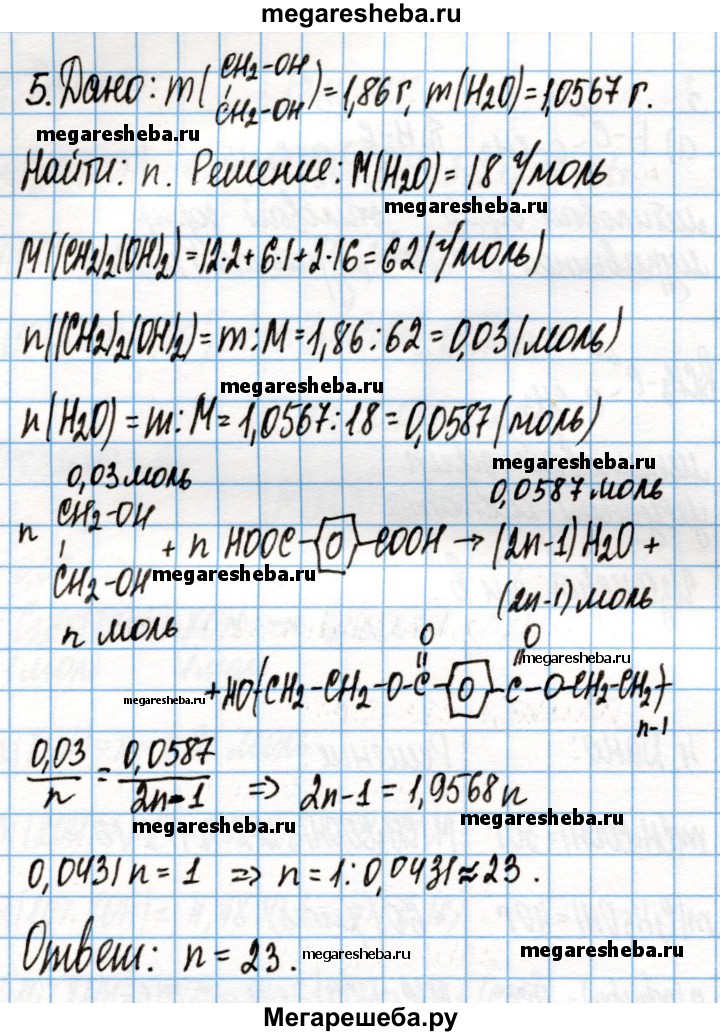 megaresheba.ru
5. Дано: m(CH2-OH
CH2-OH) = 1,86 г, m(H2O) = 1,0567 г.
megaresheba.ru
Найти: n. Решение: M(H2O) = 18 г/моль
megaresheba.ru
M((CH2)2(OH)2) = 12·2+6·1+2·16 = 62(г/моль)
n((CH2)2(OH)2) = m:M = 1,86:62 = 0,03(моль)
megaresheba.ru
n(H2O) = m:M = 1,0567:18 = 0,0587(моль)
megaresheba.ru
0,03 моль 0,0587 моль
n CH2-OH
CH2-OH + n HOOC-O-COOH → (2n-1)H2O +
megaresheba.ru
n моль (2n-1) моль
O O
megaresheba.ru
megaresheba.ru + HO(CH2-CH2-O-C-O-C-O-CH2-CH2)n-1
0,03/n = 0,0587/2n-1 ⇒ 2n-1 = 1,9568n
megaresheba.ru megaresheba.ru
0,0431n = 1 ⇒ n = 1:0,0431 ≈ 23.
Ответ: n = 23. megaresheba.ru megaresheba.ru
Мегарешеба.ру